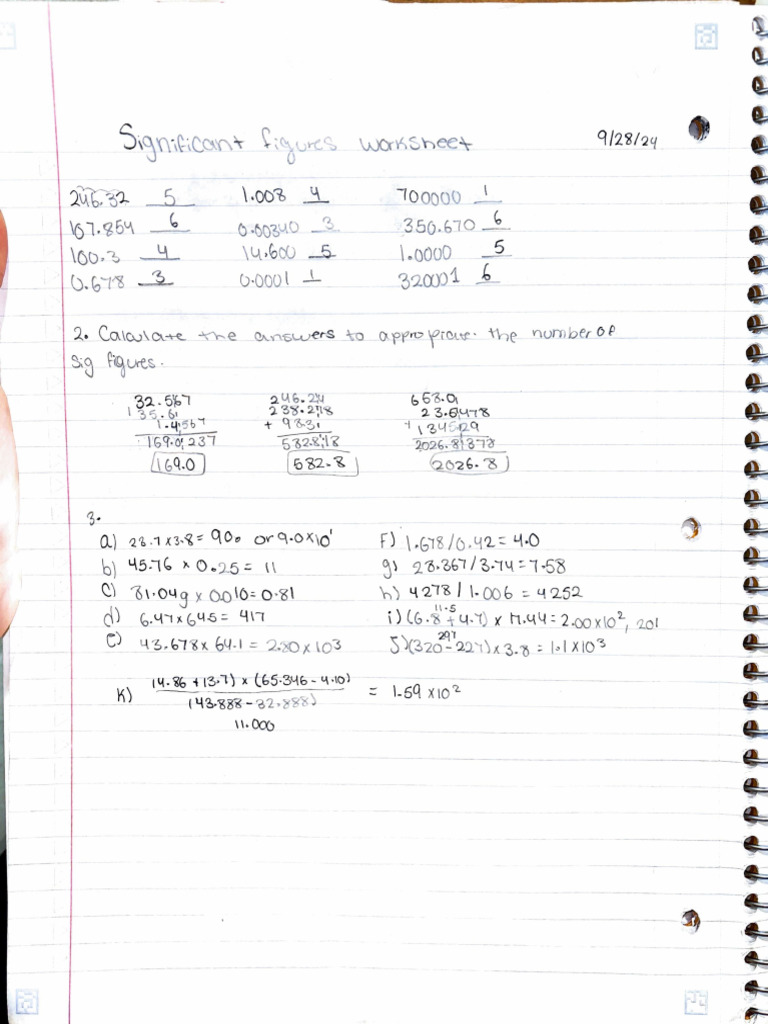 Significant figures worksheet 9/28/24
246.32 5 1.008 4 700000 1
107.854 6 0.00340 3 350.670 6
100.3 4 14.600 5 1.0000 5
0.678 3 0.0001 1 320001 6
2. Calculate the answers to appropriate. the number of
sig figures.
32.567 246.24 658.0
135.0 238.278 23.5478
1.4567 + 98.3 + 1345.29
169.0237 582.818 2026.8378
169.0 582.8 2026.8
3.
a) 23.7 x 3.8 = 90. or 9.0x10¹ F) 1.678 / 0.42 = 4.0
b) 45.76 x 0.25 = 11 g) 28.367 / 3.74 = 7.58
c) 81.04g x 0.010 = 0.81 h) 4278 / 1.006 = 4252
d) 6.47 x 64.5 = 417 11.5
i) (6.8 + 4.7) x 17.44 = 2.00 x 10², 201
e) 43.678 x 64.1 = 2.80 x 103 297
J) (320 - 227) x 3.8 = 1.1 x 10³
K) (4.86 + 13.7) x (65.346 - 4.10) = 1.59 x 10²
(43.888 - 32.888)
11.000